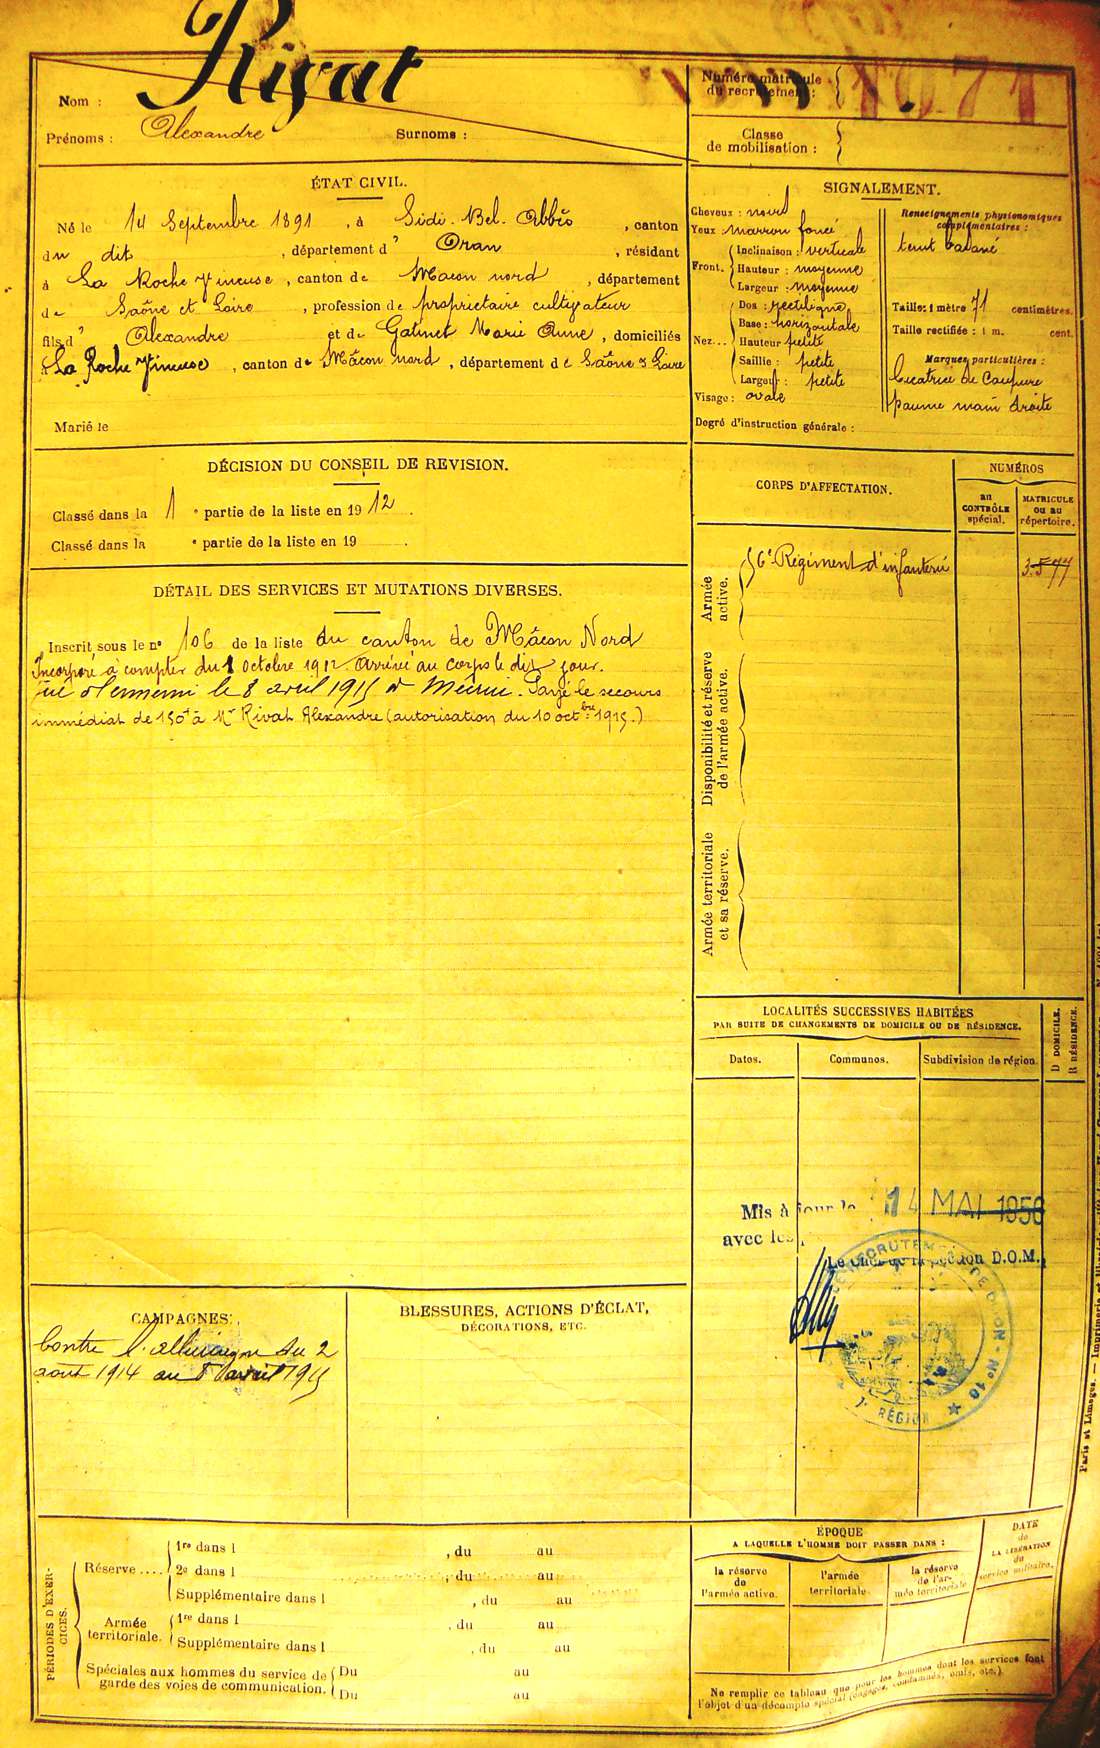 Nom : Rivat
Prénoms : Alexandre Surnoms :
Numéro matricule
du recrutement : 1071
Classe
de mobilisation :
ÉTAT CIVIL.
Né le 14 Septembre 1891, à Sidi-Bel-Abbès, canton
du dit, département d'Oran, résidant
à La Roche Vineuse, canton de Mâcon nord, département
de Saône et Loire, profession de propriétaire cultivateur
fils d'Alexandre et de Gatinet Marie Anne, domiciliés
à La Roche Vineuse, canton de Mâcon nord, département de Saône & Loire
Marié le
SIGNALEMENT.
Cheveux : noirs
Yeux marron foncé
Front. Inclinaison : verticale
Hauteur : moyenne
Largeur : moyenne
Nez... Dos : rectiligne
Base : horizontale
Hauteur petite
Saillie : petite
Largeur : petite
Visage : ovale
Renseignements physionomiques
complémentaires :
teint basané
Taille : 1 mètre 71 centimètres.
Taille rectifiée : 1 m. cent.
Marques particulières :
Cicatrice de coupure
paume main droite
Degré d'instruction générale :
DÉCISION DU CONSEIL DE REVISION.
Classé dans la 1 e partie de la liste en 1912.
Classé dans la e partie de la liste en 19 .
DÉTAIL DES SERVICES ET MUTATIONS DIVERSES.
Inscrit sous le no 106 de la liste du canton de Mâcon Nord
Incorporé à compter du 8 octobre 1912. Arrivé au corps le dit jour.
Tué à l'ennemi le 8 avril 1915 à . Payé le secours
immédiat de 150f à Mr Rivat Alexandre (autorisation du 10 octbre 1915.)
CORPS D'AFFECTATION.
NUMÉROS
au
CONTRÔLE
spécial.
MATRICULE
ou au
répertoire.
Armée
active.
56e Régiment d'infanterie 3577
Disponibilité et réserve
de l'armée active.
Armée territoriale
et sa réserve.
LOCALITÉS SUCCESSIVES HABITÉES
PAR SUITE DE CHANGEMENTS DE DOMICILE OU DE RÉSIDENCE.
Dates. Communes. Subdivision de région.
D DOMICILE.
R RÉSIDENCE.
Mis à jour le 14 MAI 1956
avec les
Le Chef de la Section D.O.M.
RECRUTEMENT DE DIJON - No 10
RÉGION
CAMPAGNES.
Contre l'allemagne du 2
août 1914 au 8 avril 1915
BLESSURES, ACTIONS D'ÉCLAT,
DÉCORATIONS, ETC.
PÉRIODES D'EXER-
CICES.
Réserve.... 1re dans l , du au
2e dans l , du au
Supplémentaire dans l , du au
Armée
territoriale. 1re dans l , du au
Supplémentaire dans l , du au
Spéciales aux hommes du service de
garde des voies de communication. Du au
Du au
ÉPOQUE
A LAQUELLE L'HOMME DOIT PASSER DANS :
la réserve
de
l'armée active.
l'armée
territoriale.
la réserve
de l'ar-
mée territoriale
DATE
de
LA LIBÉRATION
du
service militaire.
Ne remplir ce tableau que pour les hommes dont les services font
l'objet d'un décompte spécial (engagés, condamnés, omis, etc.).
Paris et Limoges. — Imprimerie et